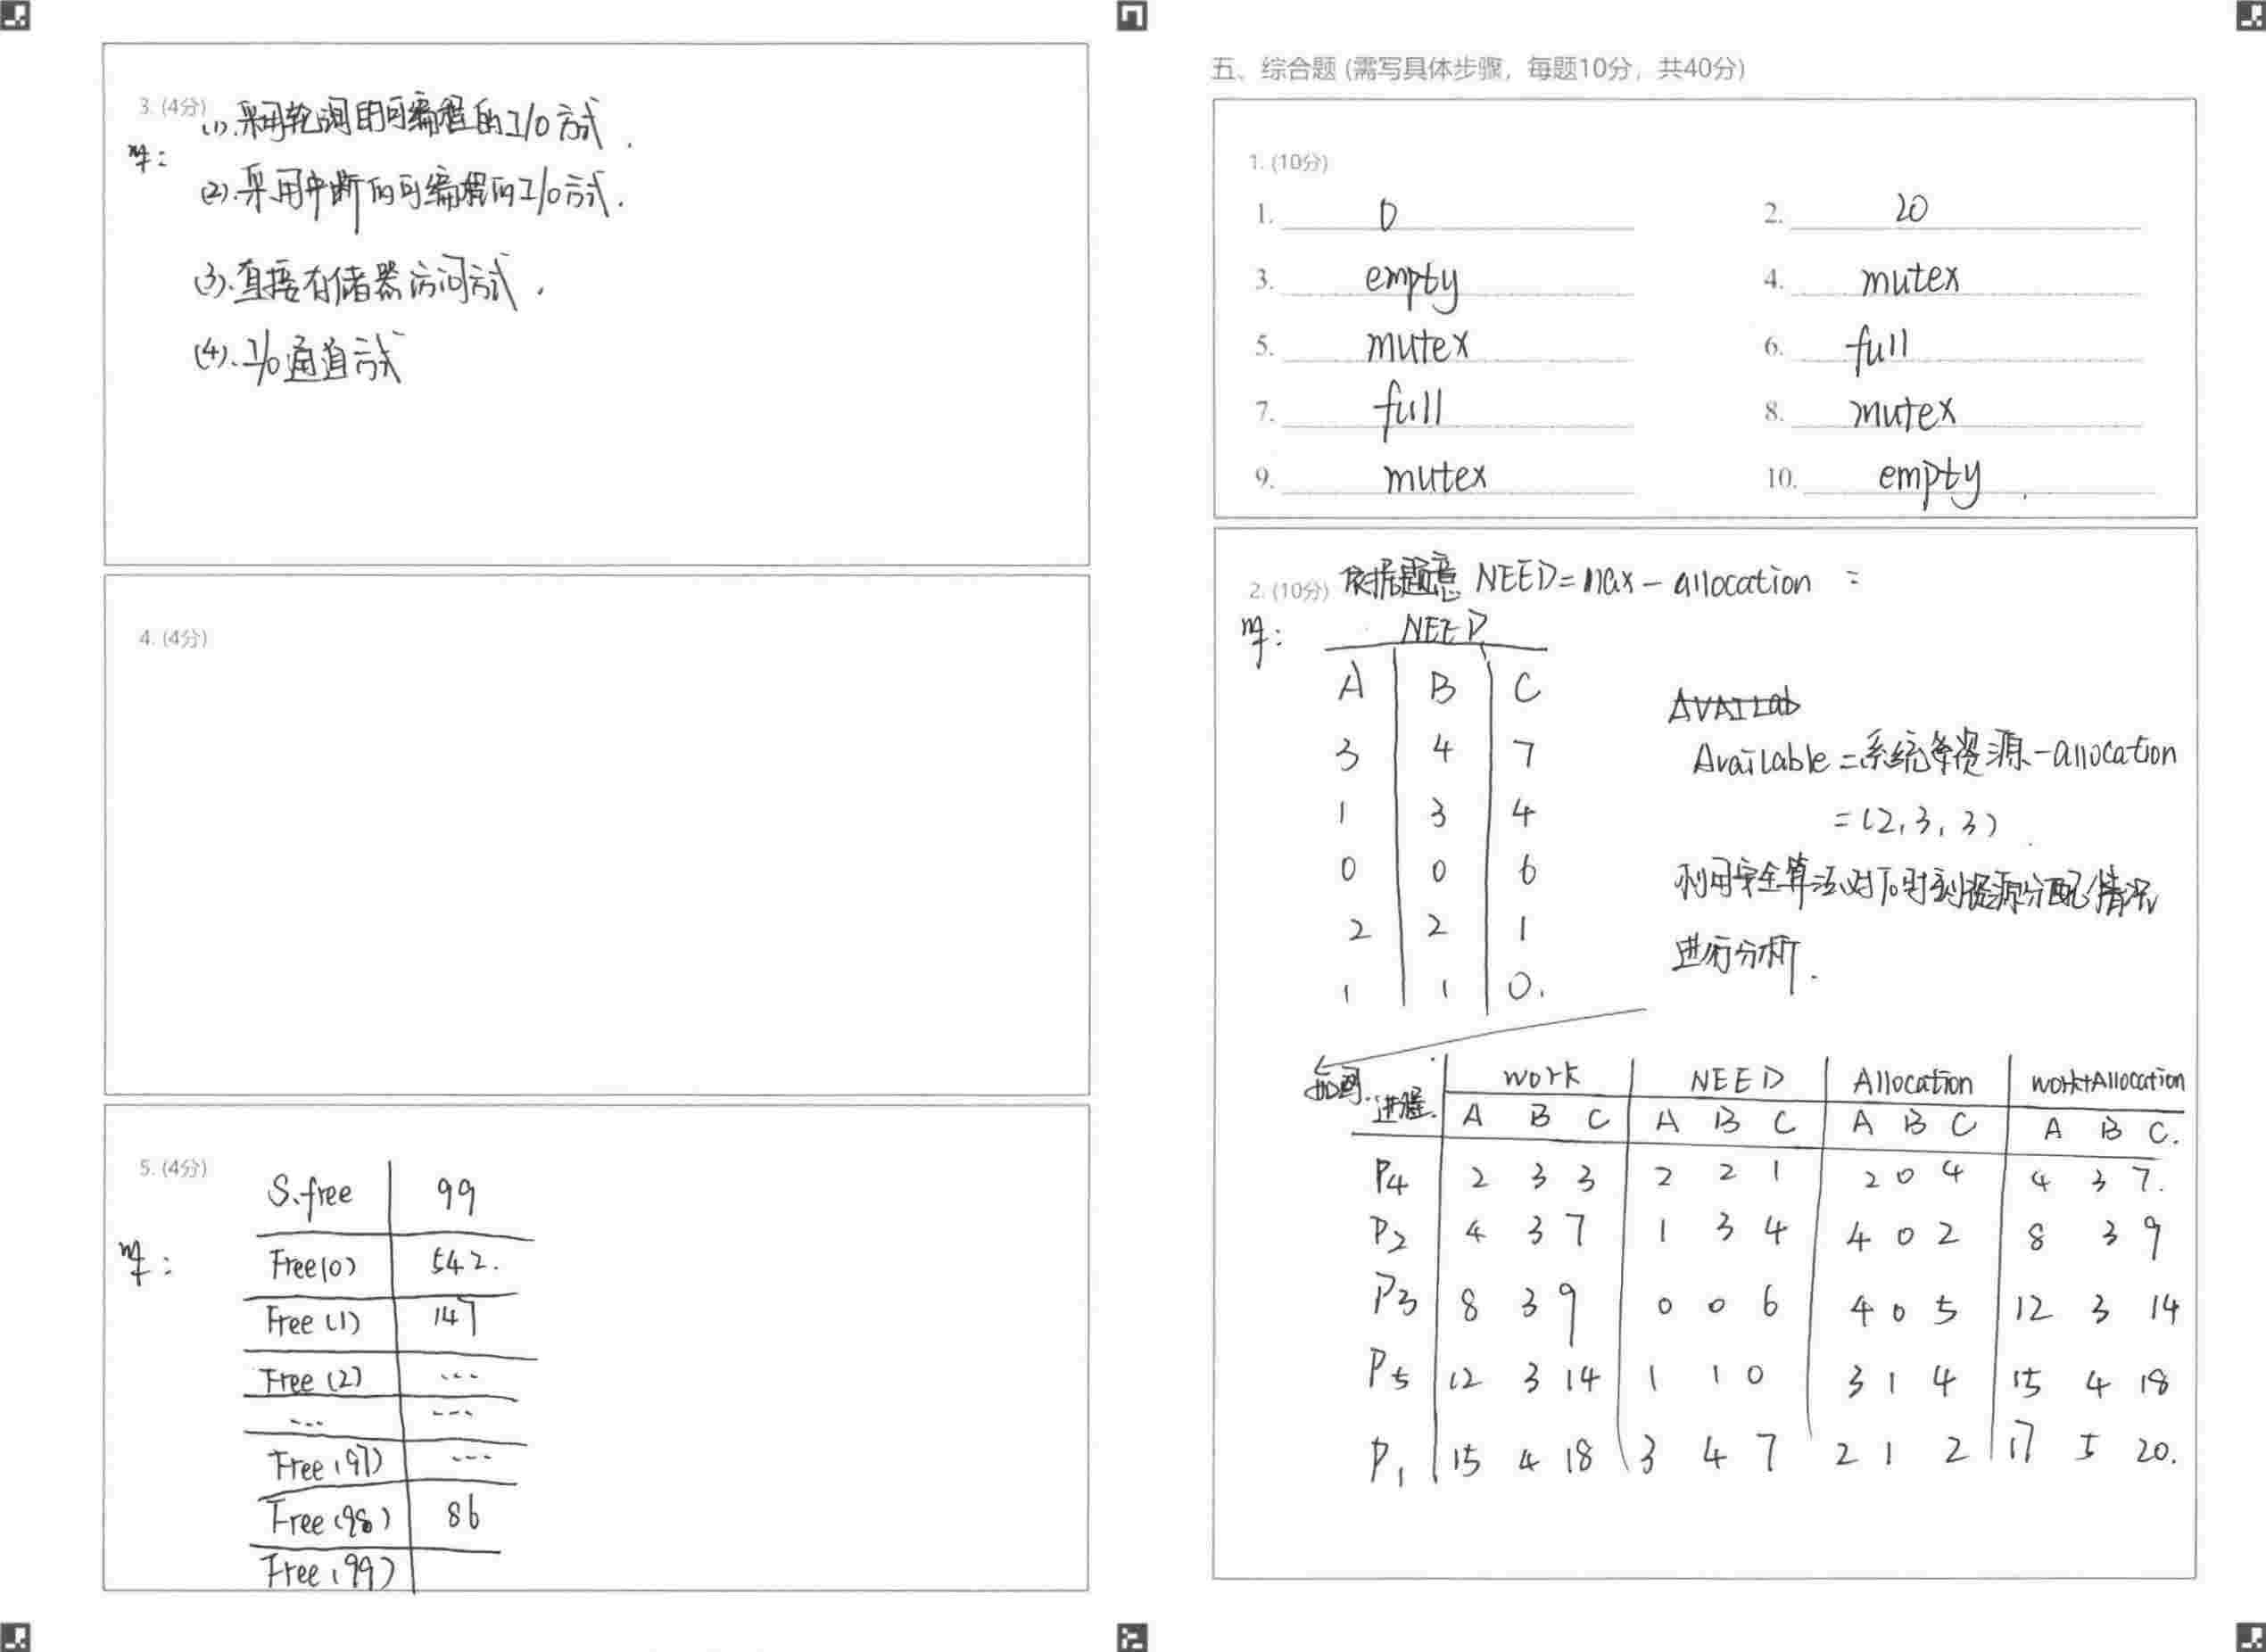 3. (4分) (1).采用轮询的可编程的I/O方式.
解:
(2).采用中断的可编程的I/O方式.
(3).直接存储器访问方式.
(4).I/O通道方式
4. (4分)
5. (4分)
解:
S.free 99
Free(0) 542.
Free(1) 147
Free(2) ...
... ...
Free(97) ...
Free(98) 86
Free(99)
五、综合题 (需写具体步骤，每题10分，共40分)
1. (10分)
1. 0 2. 20
3. empty 4. mutex
5. mutex 6. full
7. full 8. mutex
9. mutex 10. empty.
2. (10分) 依据题意 NEED=max-allocation =
解:
NEED
A B C
3 4 7
1 3 4
0 0 6
2 2 1
1 1 0.
Available=系统总资源-allocation
=(2,3,3).
利用安全算法对T0时刻资源分配情况
进行分析.
如图.
进程. work NEED Allocation work+Allocation
A B C A B C A B C A B C.
P4 2 3 3 2 2 1 2 0 4 4 3 7.
P2 4 3 7 1 3 4 4 0 2 8 3 9
P3 8 3 9 0 0 6 4 0 5 12 3 14
P5 12 3 14 1 1 0 3 1 4 15 4 18
P1 15 4 18 3 4 7 2 1 2 17 5 20.